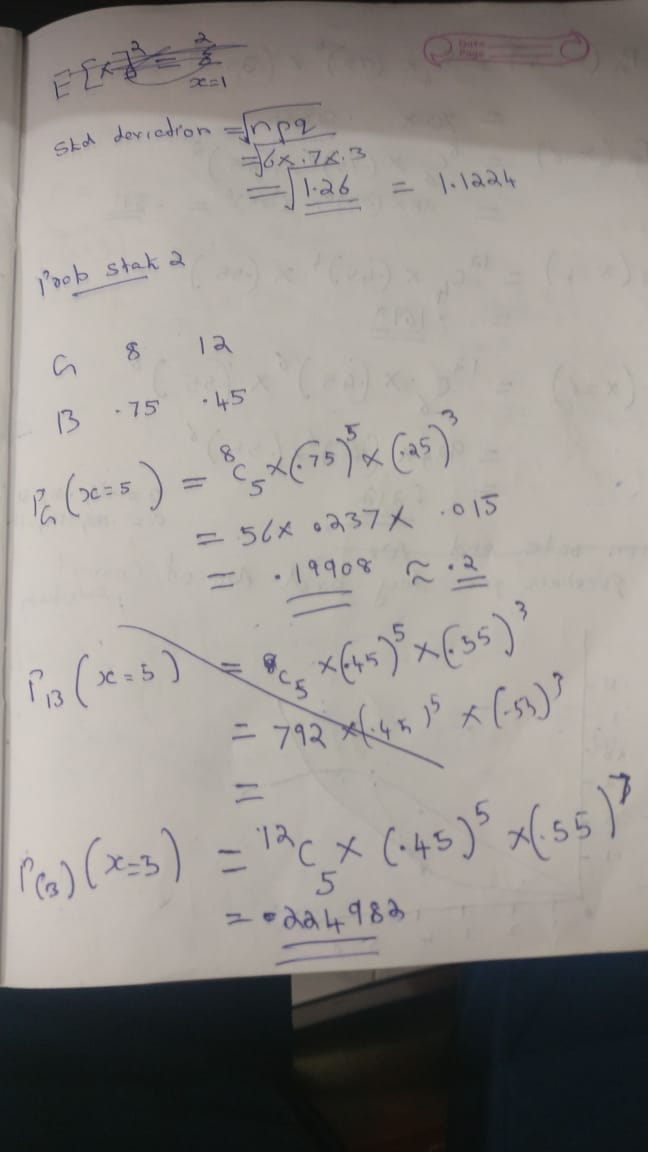 Date
Page
E[x]² = 2
x=1
Std deviation = √npq
= √6×.7×.3
= √1.26 = 1.1224
Prob stak 2
G 8 12
B .75 .45
P_G (x=5) = ⁸C₅ × (.75)⁵ × (.25)³
= 56 × .237 × .015
= .19908 ≈ .2
P_B (x=5) = 8C₅ × (.45)⁵ × (.35)³
= 792 × (.45)⁵ × (.55)³
=
P_(B) (x=3) = ¹²C₅ × (.45)⁵ × (.55)⁷
= .224982